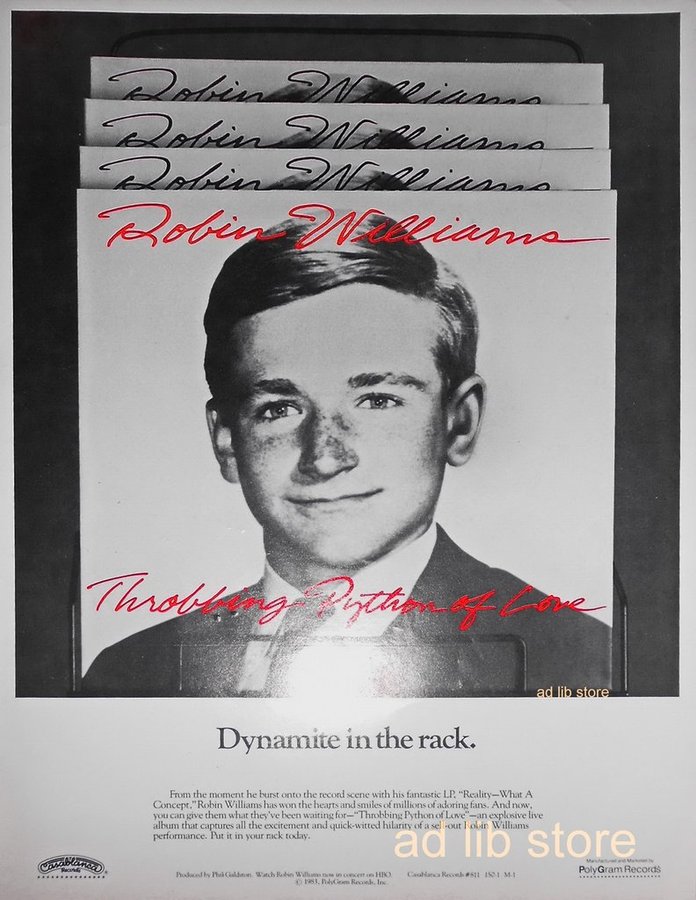 Robin Williams
Robin Williams
Robin Williams
Robin Williams
Throbbing Python of Love
ad lib store
Dynamite in the rack.
From the moment he burst onto the record scene with his fantastic LP, "Reality—What A
Concept," Robin Williams has won the hearts and smiles of millions of adoring fans. And now,
you can give them what they've been waiting for—"Throbbing Python of Love"—an explosive live
album that captures all the excitement and quick-witted hilarity of a sell-out Robin Williams
performance. Put it in your rack today.
ad lib store
Casablanca
Records
Produced by Phil Galdston. Watch Robin Williams now in concert on HBO. Casablanca Records #811 150-1 M-1
© 1983, PolyGram Records, Inc.
Manufactured and Marketed by
PolyGram Records